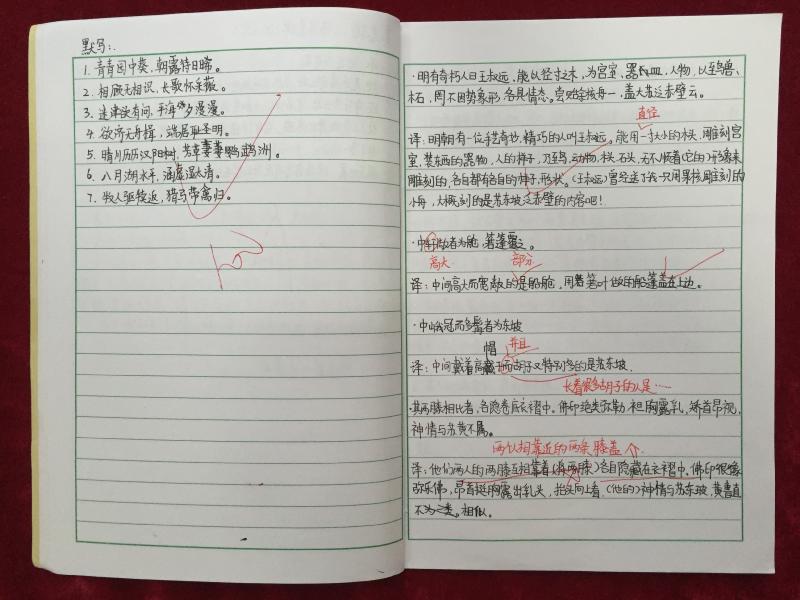 默写:.
1. 青青园中葵，朝露待日晞。
2. 相顾无相识，长歌怀采薇。
3. 迷津欲有问，平海夕漫漫。
4. 欲济无舟楫，端居耻圣明。
5. 晴川历历汉阳树，芳草萋萋鹦鹉洲。
6. 八月湖水平，涵虚混太清。
7. 牧人驱犊返，猎马带禽归。
·明有奇巧人曰王叔远，能以径寸之木，为宫室，器皿，人物，以至鸟兽、
木石，罔不因势象形，各具情态。尝贻余核舟一，盖大苏泛赤壁云。
直径
译：明朝有一位手艺奇妙，精巧的人叫王叔远。能用一寸大小的木头，雕刻宫
室，装东西的器物，人的样子，乃至鸟，动物，木头，石头，无不顺着（它的）形象来
雕刻的，各自都有各自的样子，形状。（王叔远）曾经送了我一只用果核雕刻的
小舟，大概刻的是苏东坡泛赤壁的内容吧！
·中轩敞者为舱，箬篷覆之。
高大 部分
译：中间高大而宽敞的是船舱，用箬叶做的船篷盖在上边。
·中峨冠而多髯者为东坡
帽 并且
译：中间戴着高而胡子又特别多的是苏东坡.
长着很多胡子的人是…
·其两膝相比者，各隐卷底衣褶中。佛印绝类弥勒，袒胸露乳，矫首昂视，
神情与苏黄不属。
两何相靠近的两条膝盖
译：他们两人的两膝互相靠着（将两膝）各自隐藏在衣褶中，佛印很像
弥乐佛，昂首挺胸露出乳头，抬头向上看，（他的）神情与苏东坡，黄鲁直
不为之类。相似。